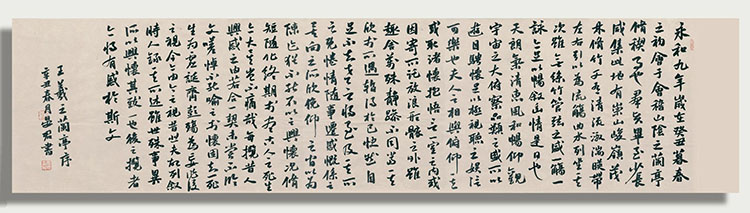 永和九年歲在癸丑暮春
之初會于會稽山陰之蘭亭
脩稧事也羣賢畢至少長
咸集此地有崇山峻領茂
林脩竹又有清流激湍暎帶
左右引以為流觴曲水列坐其
次雖無絲竹管弦之盛一觴一
詠亦足以暢敘幽情是日也
天朗氣清惠風和暢仰觀
宇宙之大俯察品類之盛所以
遊目騁懷足以極視聽之娛信
可樂也夫人之相與俯仰一世
或取諸懷抱悟言一室之內或
因寄所託放浪形骸之外雖
趣舍萬殊靜躁不同當其
欣於所遇暫得於己怏然自
足不知老之將至及其所
之既惓情隨事遷感慨係之
矣向之所欣俛仰之間以為
陳迹猶不能不以之興懷況脩
短隨化終期於盡古人云死生
亦大矣豈不痛哉每攬昔人
興感之由若合一契未嘗不臨
文嗟悼不能喻之於懷固知一死
生為虛誕齊彭殤為妄作後
之視今亦由今之視昔悲夫故列敘
時人錄其所述雖世殊事異
所以興懷其致一也後之攬者
亦將有感於斯文
王羲之蘭亭序
辛丑春月書